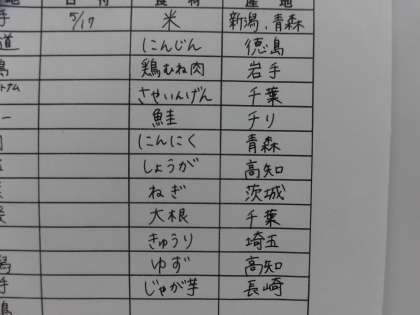 日付 食材 産地
手 5/17 米 新潟、青森
道 にんじん 徳島
島 鶏むね肉 岩手
トナム さやいんげん 千葉
ー 鮭 チリ
にんにく 青森
しょうが 高知
ねぎ 茨城
大根 千葉
きゅうり 埼玉
潟 ゆず 高知
手 じゃが芋 長崎
島